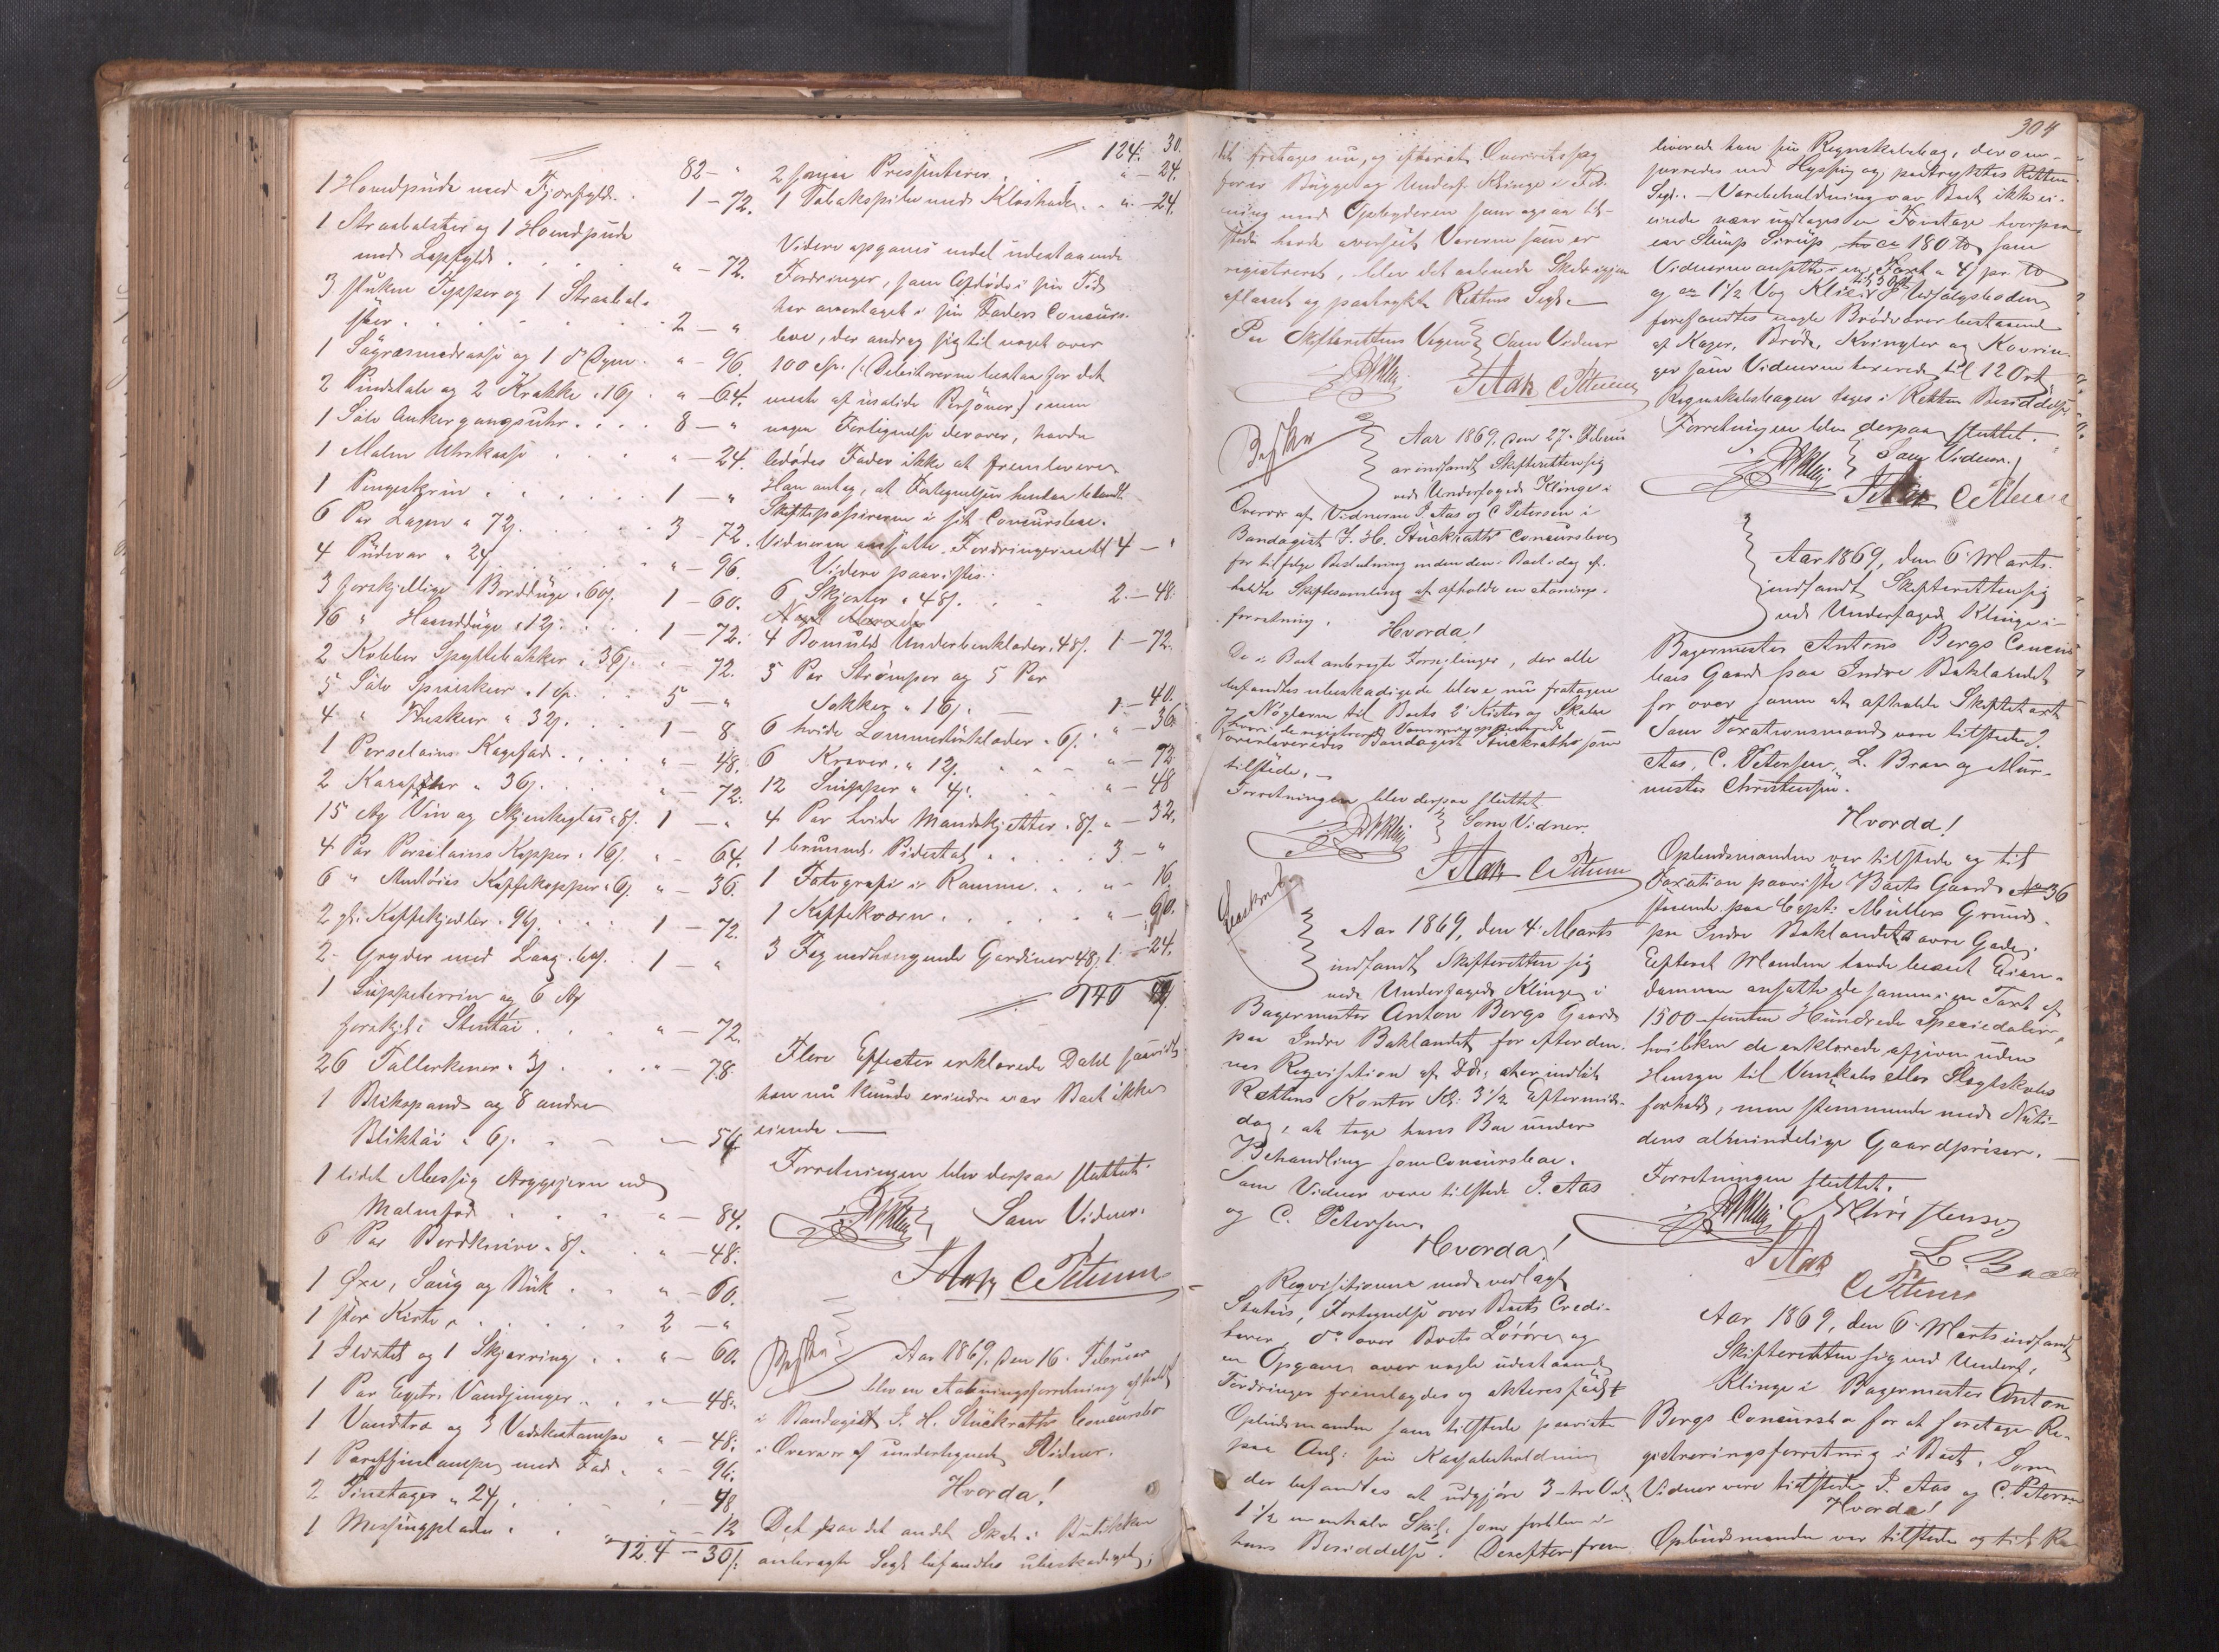 82 - "
1 Hovedpude med Fjærfyld . 1 - 72.
1 Straabolster og 1 Hovedpude
med Lapfyld . . . . " - 72.
3 stukne Tepper og 1 Straabol-
ster . . . . . . 2 - "
1 Søgræsmadrasse og 1 do Dyne . " - 96.
2 Pindstole og 2 Krakke a 16 s . " - 64.
1 Sølv Ankergangsuhr . . . . 8 - "
1 Malm Uhrkasse . . . " - 24.
1 Pengeskrin . . . . . 1 - "
6 Par Lagen a 72 s. . . . . 3 - 72.
4 Pudevar a 24 s . . . . " - 96.
3 forskjellige Borddüge a 60 s. 1 - 60.
16 " Haanddüge a 12 s. . . 1 - 72.
2 Kobber Spyttebakker a 36 s. " - 72.
5 Sølv Spiseskeer a 1 Sp. . . 5 - "
4 " Theskeer a 32 s. . . 1 - 8
1 Porselains Kagefad . . . " - 48.
2 Karafler a 36 s. . . . " - 72.
15 St Vin og Skjenkeglas a 8 s. 1 - "
4 Par Porselains Kopper a 16 s. " - 64.
6 " Kaffekopper a 6 s. " - 36.
2 gl. Kaffekjedler a 96 s. . . 1 - 72.
2 Gryder med Laag a 60 s. . 1 - "
1 Suppeterrin og 6 St
forskjel: Stentøi . . . " - 72.
26 Tallerkener a 3 s . . . " - 78.
1 Blikspand og 8 andre
Bliktøi a 6 s. . . - 54
1 lidet Messing Strygejern med
Malmfod . . . . " - 84.
6 Par Bordknive a 8 s. . " - 48.
1 Øxe, Saug og . " - 60.
1 stor Kiste . . . . . 2 - "
1 Ildstet og 1 Skjærring . . " - 60.
1 Par Egetr. Vandspringer . . " - 48.
1 Vandtræ og 3 " - 48.
1 Paraffinlampe med Fad . " - 96.
2 a 24 s. . . . " - 48
1 Messingplade . . . " - 12
124 - 30 s.
124: 30.
2 Presseninger . . " - 24.
1 Tobakspibe med . " - 24.
Videre opgaves endel udestaaende
Fordringer, som Afdøde i sin Tid
har overtaget i sin Faders Concurs-
boe, der androg sig til noget over
100 Sp. /: Debitorerne bestaar for det
meste af usolide Personer :/, men
nogen Fortegnelse derover, havde
Fader ikke at fremlevere
Han antog, at Fortegnelsen hentaa blandt
Skiftepapirerne i sit Concursboe.
Vidnerne ansatte Fordringerne til 4 - "
Videre paavistes:
6 Skjorter a 48 s. . . . 2. - 48.
4 Bomulds Underbenklæder a 48 s. 1 - 72.
5 Par Strømper og 5 Par
Sokker a 16 s. — 1 - 40.
6 hvide Lommetørklæder a 6 s. " - 36
6 Kraver a 12 s. . . . " - 72
12 Snipper a 4 s. . . . " - 48
4 Par hvide Mandskjetter a 8 s. " - 32.
1 brunmal. Pidestal . . . . 3 - "
1 Fotografi i Ramme . . . " - 16.
1 Kaffekværn . . . . . " - 60.
3 Fag nedhængende Gardiner a 48 s. 1 - 24.
140
Flere Effecter erklærede Dahl saavidt
han nu kunde erindre var Boet ikke
eiende —
Forretningen blev derpaa sluttet.
Som Vidner.
J Aas C Petersen
Aar 1869, den 16. Februar
blev en Aabningsforretning afholdt
i Bandagist J. H. Stückraths Concursbo
i Overvær af undertegnede Vidner.
Hvorda!
Det paa det andet Sted i Butikken
anbragte Segl befandtes ubeskadiget;
304
det fratages nu, og efterat Overretssag-
fører Bügge og Underf. Klinge i Fore-
ning med Opbyderen som ogsaa til-
stede havde overseet Varerne som er
registreret, blev det aabnede Sted igjen
aflaaset og paatrykt Rettens Segl. —
Paa Skifterettens Vegne Som Vidner
J Aas C Petersen
Aar 1869, den 27. Febru
ar indfandt Skifteretten sig
ved Underfoged Klinge i
Overvær af Vidnerne J. Aas og C Petersen i
Bandagist J. H. Stückraths Concursboe
for tilfølge Beslutning inden den i Boet i dag af-
holdte Skiftesamling at afholde en Aabnings-
forretning.
Hvorda!
De i Boet anbragte Forseglinger, der alle
befandtes ubeskadigede bleve nu fratagne
og Nøglerne til Boets 2 Kister og Skabe
hvori de registrerede Varer
overleveredes Bandagist Stückrath som
tilstede. —
Forretningen blev derpaa sluttet
Som Vidner.
J Aas C Petersen
Aar 1869, den 4. Marts
indfandt Skifteretten sig
ved Underfoged Klinge i
Bagermester Anton Bergs Gaard
paa Indre Baklandet for efter den-
nes Reqvisition af D.D., indløb
Rettens Kontor Kl: 3 1/2 Eftermid-
dag, at tage hans Bo under
Behandling som Concursboe.
Som Vidner vare tilstede J. Aas
og C. Petersen.
Hvorda!
Reqvisitionen med vedlagt
Status, Fortegnelse over Boets Credi-
torer, do over Boets Løsøre og
en Opgave over nogle udestaaende
Fordringer fremlagdes og akteres
Opbudsmanden som tilstede paaviste
paa Anf: sin Kassebeholdning
der befandtes at udgjøre 3 - tre Ort
1 1/2 en en halv Skil. som forblev i
hans Besiddelse. Derefter frem-
leverede han sin Regnskabsbog, der om-
snørredes med Hyssing og paatryktes Rettens
Segl. — Varebeholdning var Boet ikke ei-
ende naar undtages en Fustage hvorpaa
var Slump Sirup, ca 180 som
Vidnerne ansatte i en Taxt a 4 s pr.
og ca 1 1/2 Vog Klid I Udsalgsboden
forefandtes nogle Brødvarer bestaaende
af Kager, Brøde, Kringler og Kavrin-
ger som Vidnerne taxerede til 12 Ort
Regnskabsbogen toges i Rettens Besiddelse.
Forretningen blev derpaa sluttet.
Som Vidner.
J Aas C Petersen
Aar 1869, den 6. Marts
indfandt Skifteretten sig
ved Underfoged Klinge i
Bagermester Antons Bergs Concurs
boes Gaard paa Indre Baklandet
for over samme at afholde Skiftetaxt
Som Taxationsmænd vare tilstede J.
Aas, C. Petersen, L. Braa og Mur-
mester Christensen.
Hvorda!
Opbudsmanden var tilstede og til
Taxation paaviste Boets Gaard No 36
staaende paa Capt: Müllers Grund
paa Indre Baklandets øvre Gade.
Efterat Mændene havde beseet Eien-
dommen ansatte de samme i en Taxt af
1500 - femten Hundrede Speciedaler,
hvilken de erklærede afgiven uden
Hensyn til Venskabs eller Slægtskabs
forhold, men stemmende med Nuti-
dens almindelige Gaardpriser. —
Forretningen sluttet.
Christensen
J Aas L. Braa
C Petersen
Aar 1869, den 6. Marts indfandt
Skifteretten sig ved Underf.
Klinge i Bagermester Anton
Bergs Concursbo for at foretage Re-
gistreringsforretning i Boet. Som
Vidner vare tilstede J. Aas og C. Petersen
Hvorda!
Opbudsmanden var tilstede og til Re